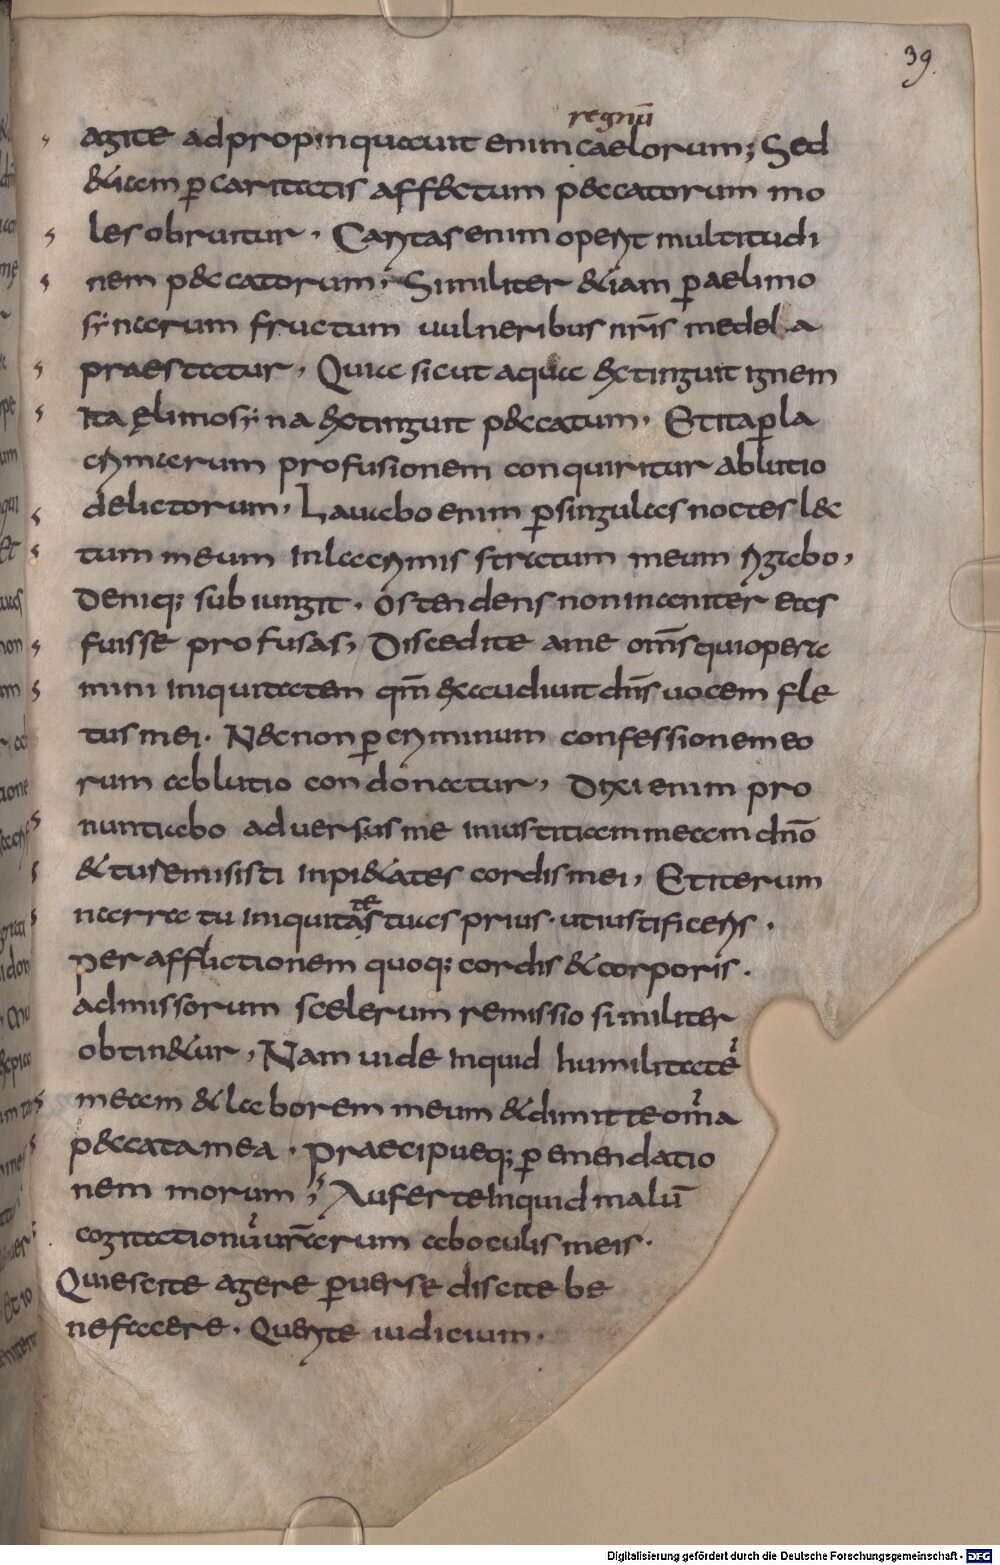 39
regnū
agite adpropinquauit enim caelorum; Sed
&iam p̄ caritatis aff&ctum p&ccatorum mo
les obruitur, Caritas enim operit multitudi
nem p&ccatorum; Similiter &iam p̄ aelimo
synarum fructum uulneribus nr̄is medela
praestatur, Quia sicut aqua &xtinguit ignem
Ita ęlimosyna &xtinguit p&ccatum, Et ita p̄ la
crymarum profusionem conquiritur ablutio
delictorum, Lauabo enim p̄ singulas noctes l&c
tum meum in lacrymis stratum meum rigabo,
Deniq; subiungit. ostendens non inaniter eas
fuisse profusas, Discedite a me om̄s qui opera
mini iniquitatem qm̄ &xaudiuit dn̄s uocem fle
tus mei. N&c non p̄ criminum confessionem eo
rum ablutio condonatur, Dixi enim pro
nuntiabo aduersus me iniustitiam meam dnō
& tu remisisti inpi&ates cordis mei, Et iterum
te
narra tu iniquitas tuas prius. ut iustificeris.
per afflictionem quoq; cordis & corporis.
admissorum scelerum remissio similiter
obtin&ur, Nam uide inquid humilitatē
meam & laborem meum & dimitte om̄a
p&ccata mea. praecipueq; p̄ emendatio
nem morum; Auferte inquid malū
cogitationū urārum ab oculis meis.
Quiescite agere p̄uerse discite be
nefacere. Querite iudicium.
Digitalisierung gefördert durch die Deutsche Forschungsgemeinschaft - DFG